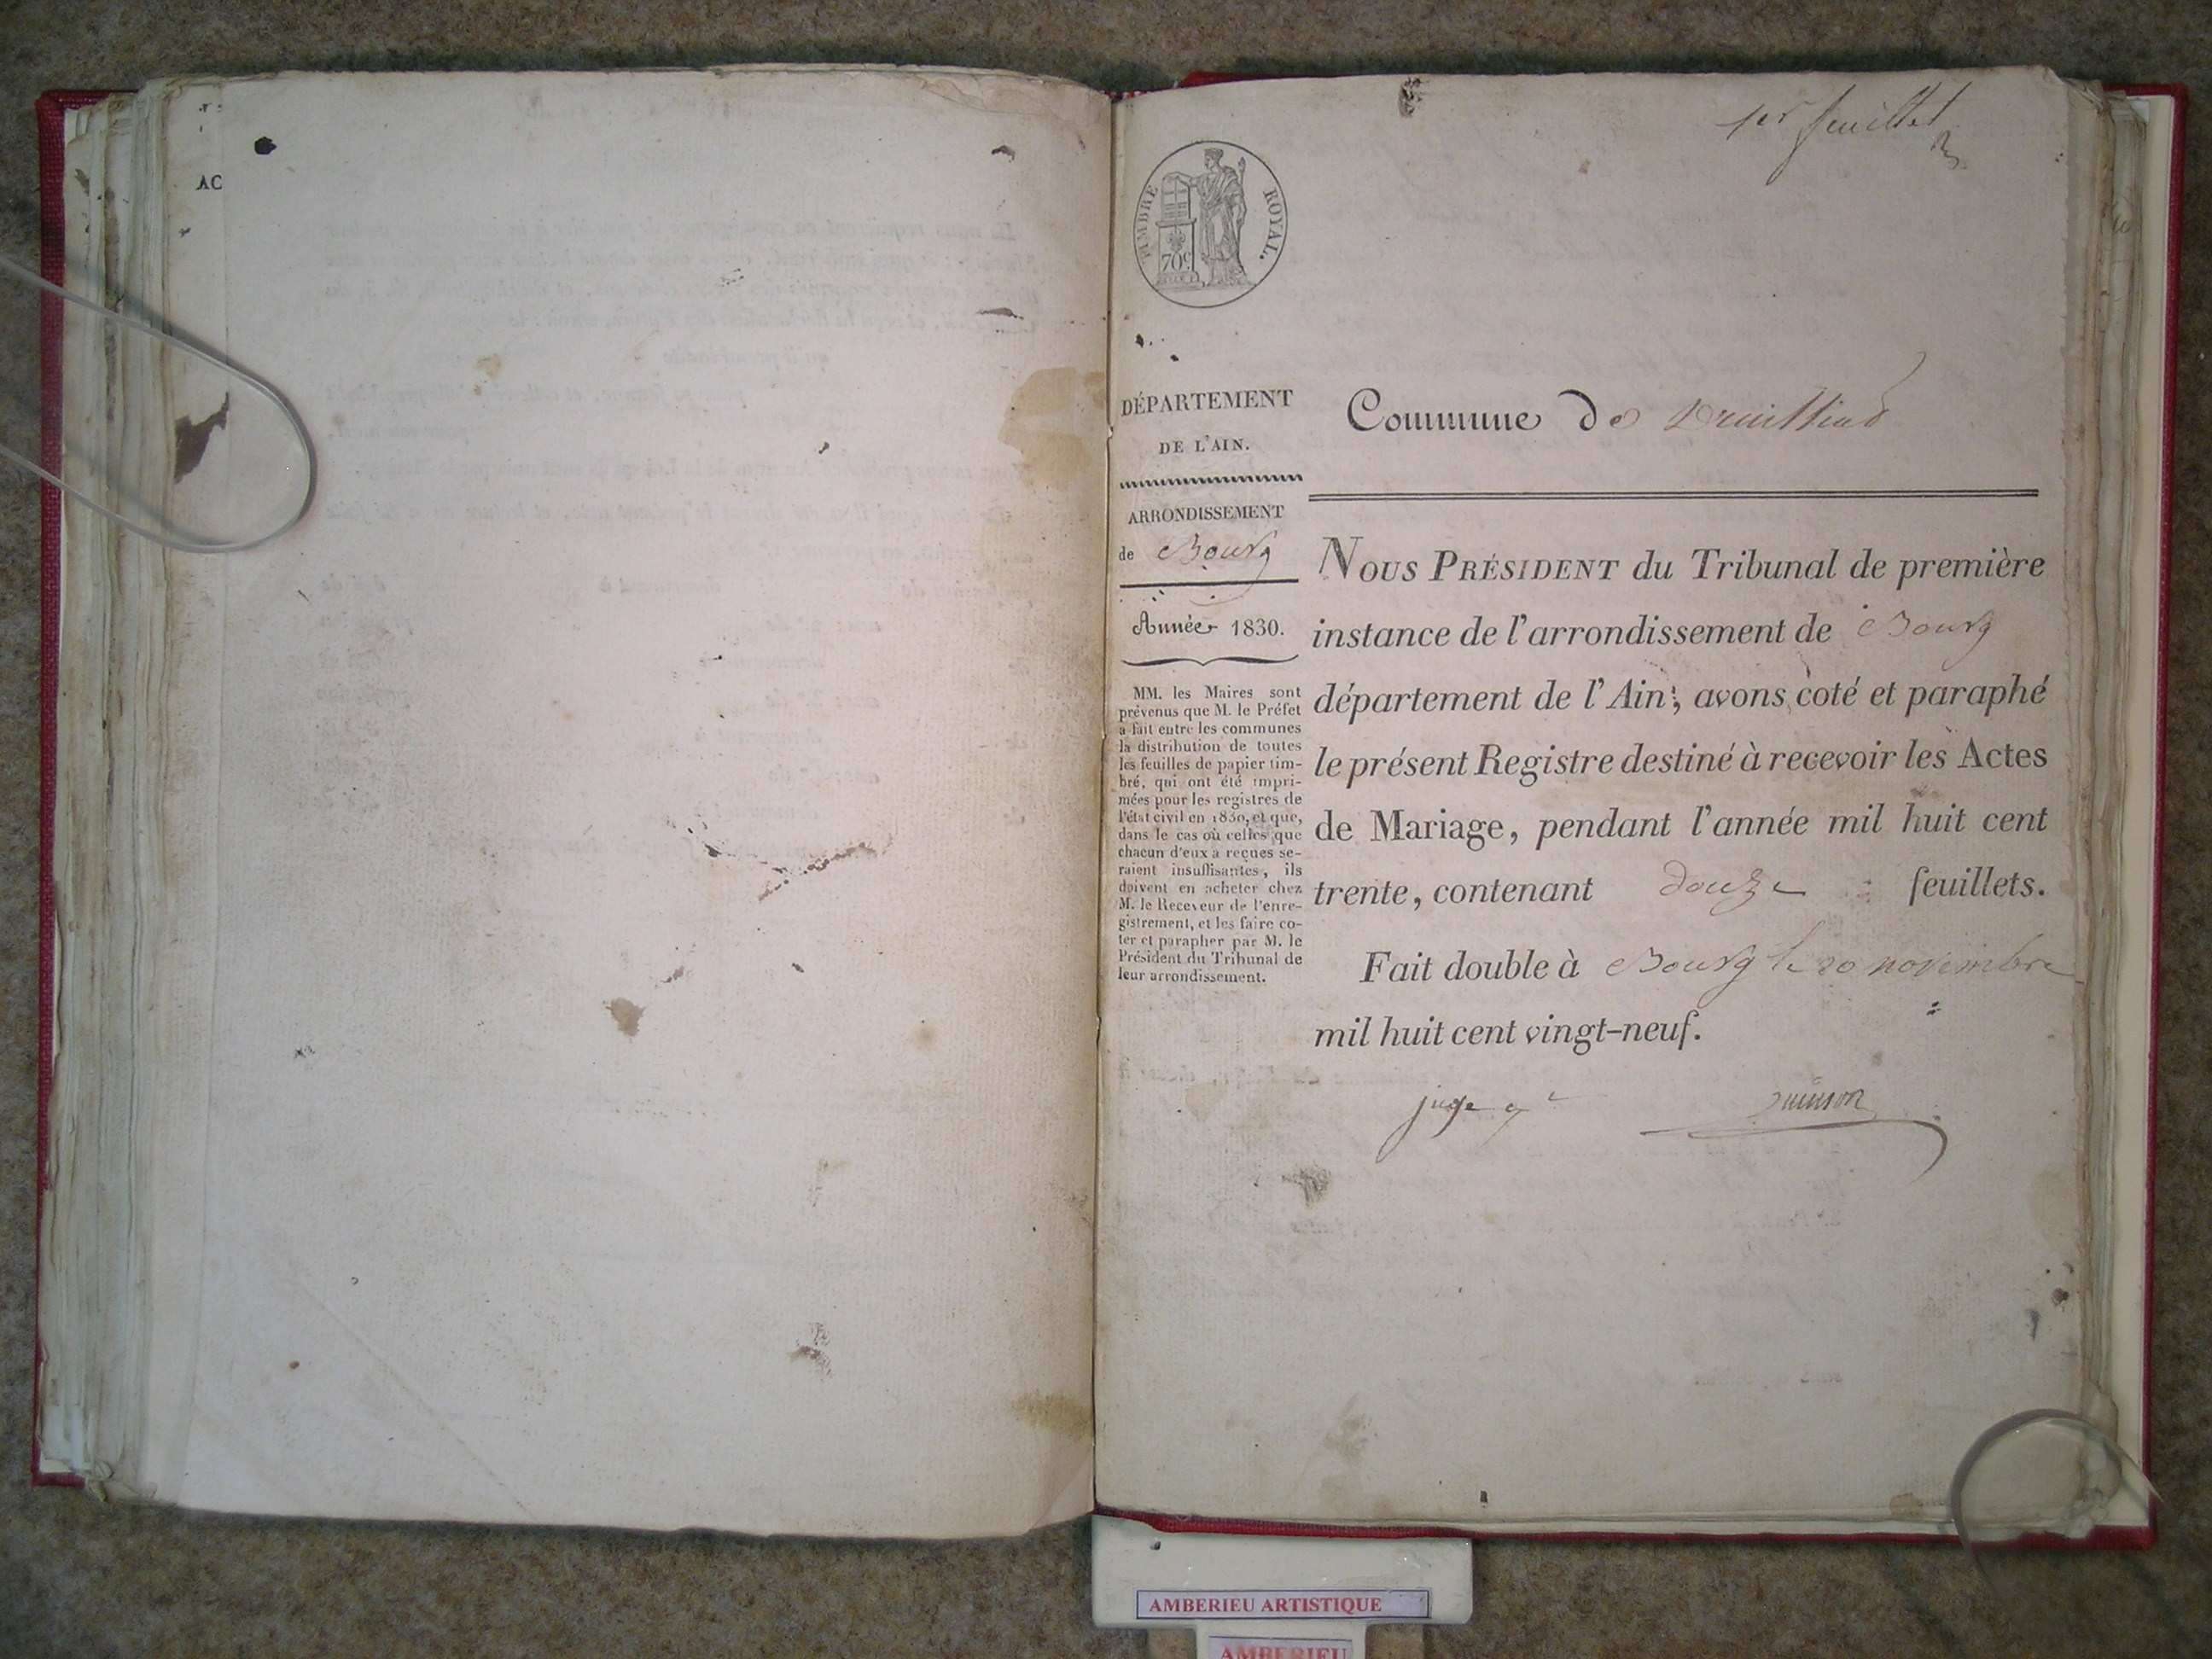 AC
1er feuillet
TIMBRE ROYAL.
70c
DÉPARTEMENT
DE L'AIN.
ARRONDISSEMENT
de Bourg
Année 1830.
MM. les Maires sont
prévenus que M. le Préfet
a fait entre les communes
la distribution de toutes
les feuilles de papier tim-
bré, qui ont été impri-
mées pour les registres de
l'état civil en 1830, et que,
dans le cas où celles que
chacun d'eux a reçues se-
raient insuffisantes, ils
doivent en acheter chez
M. le Receveur de l'enre-
gistrement, et les faire co-
ter et parapher par M. le
Président du Tribunal de
leur arrondissement.
Commune de Druillias
NOUS PRÉSIDENT du Tribunal de première
instance de l'arrondissement de Bourg
département de l'Ain, avons coté et paraphé
le présent Registre destiné à recevoir les Actes
de Mariage, pendant l'année mil huit cent
trente, contenant douze feuillets.
Fait double à Bourg le 20 novembre
mil huit cent vingt-neuf.
juge
AMBERIEU ARTISTIQUE
AMBERIEU